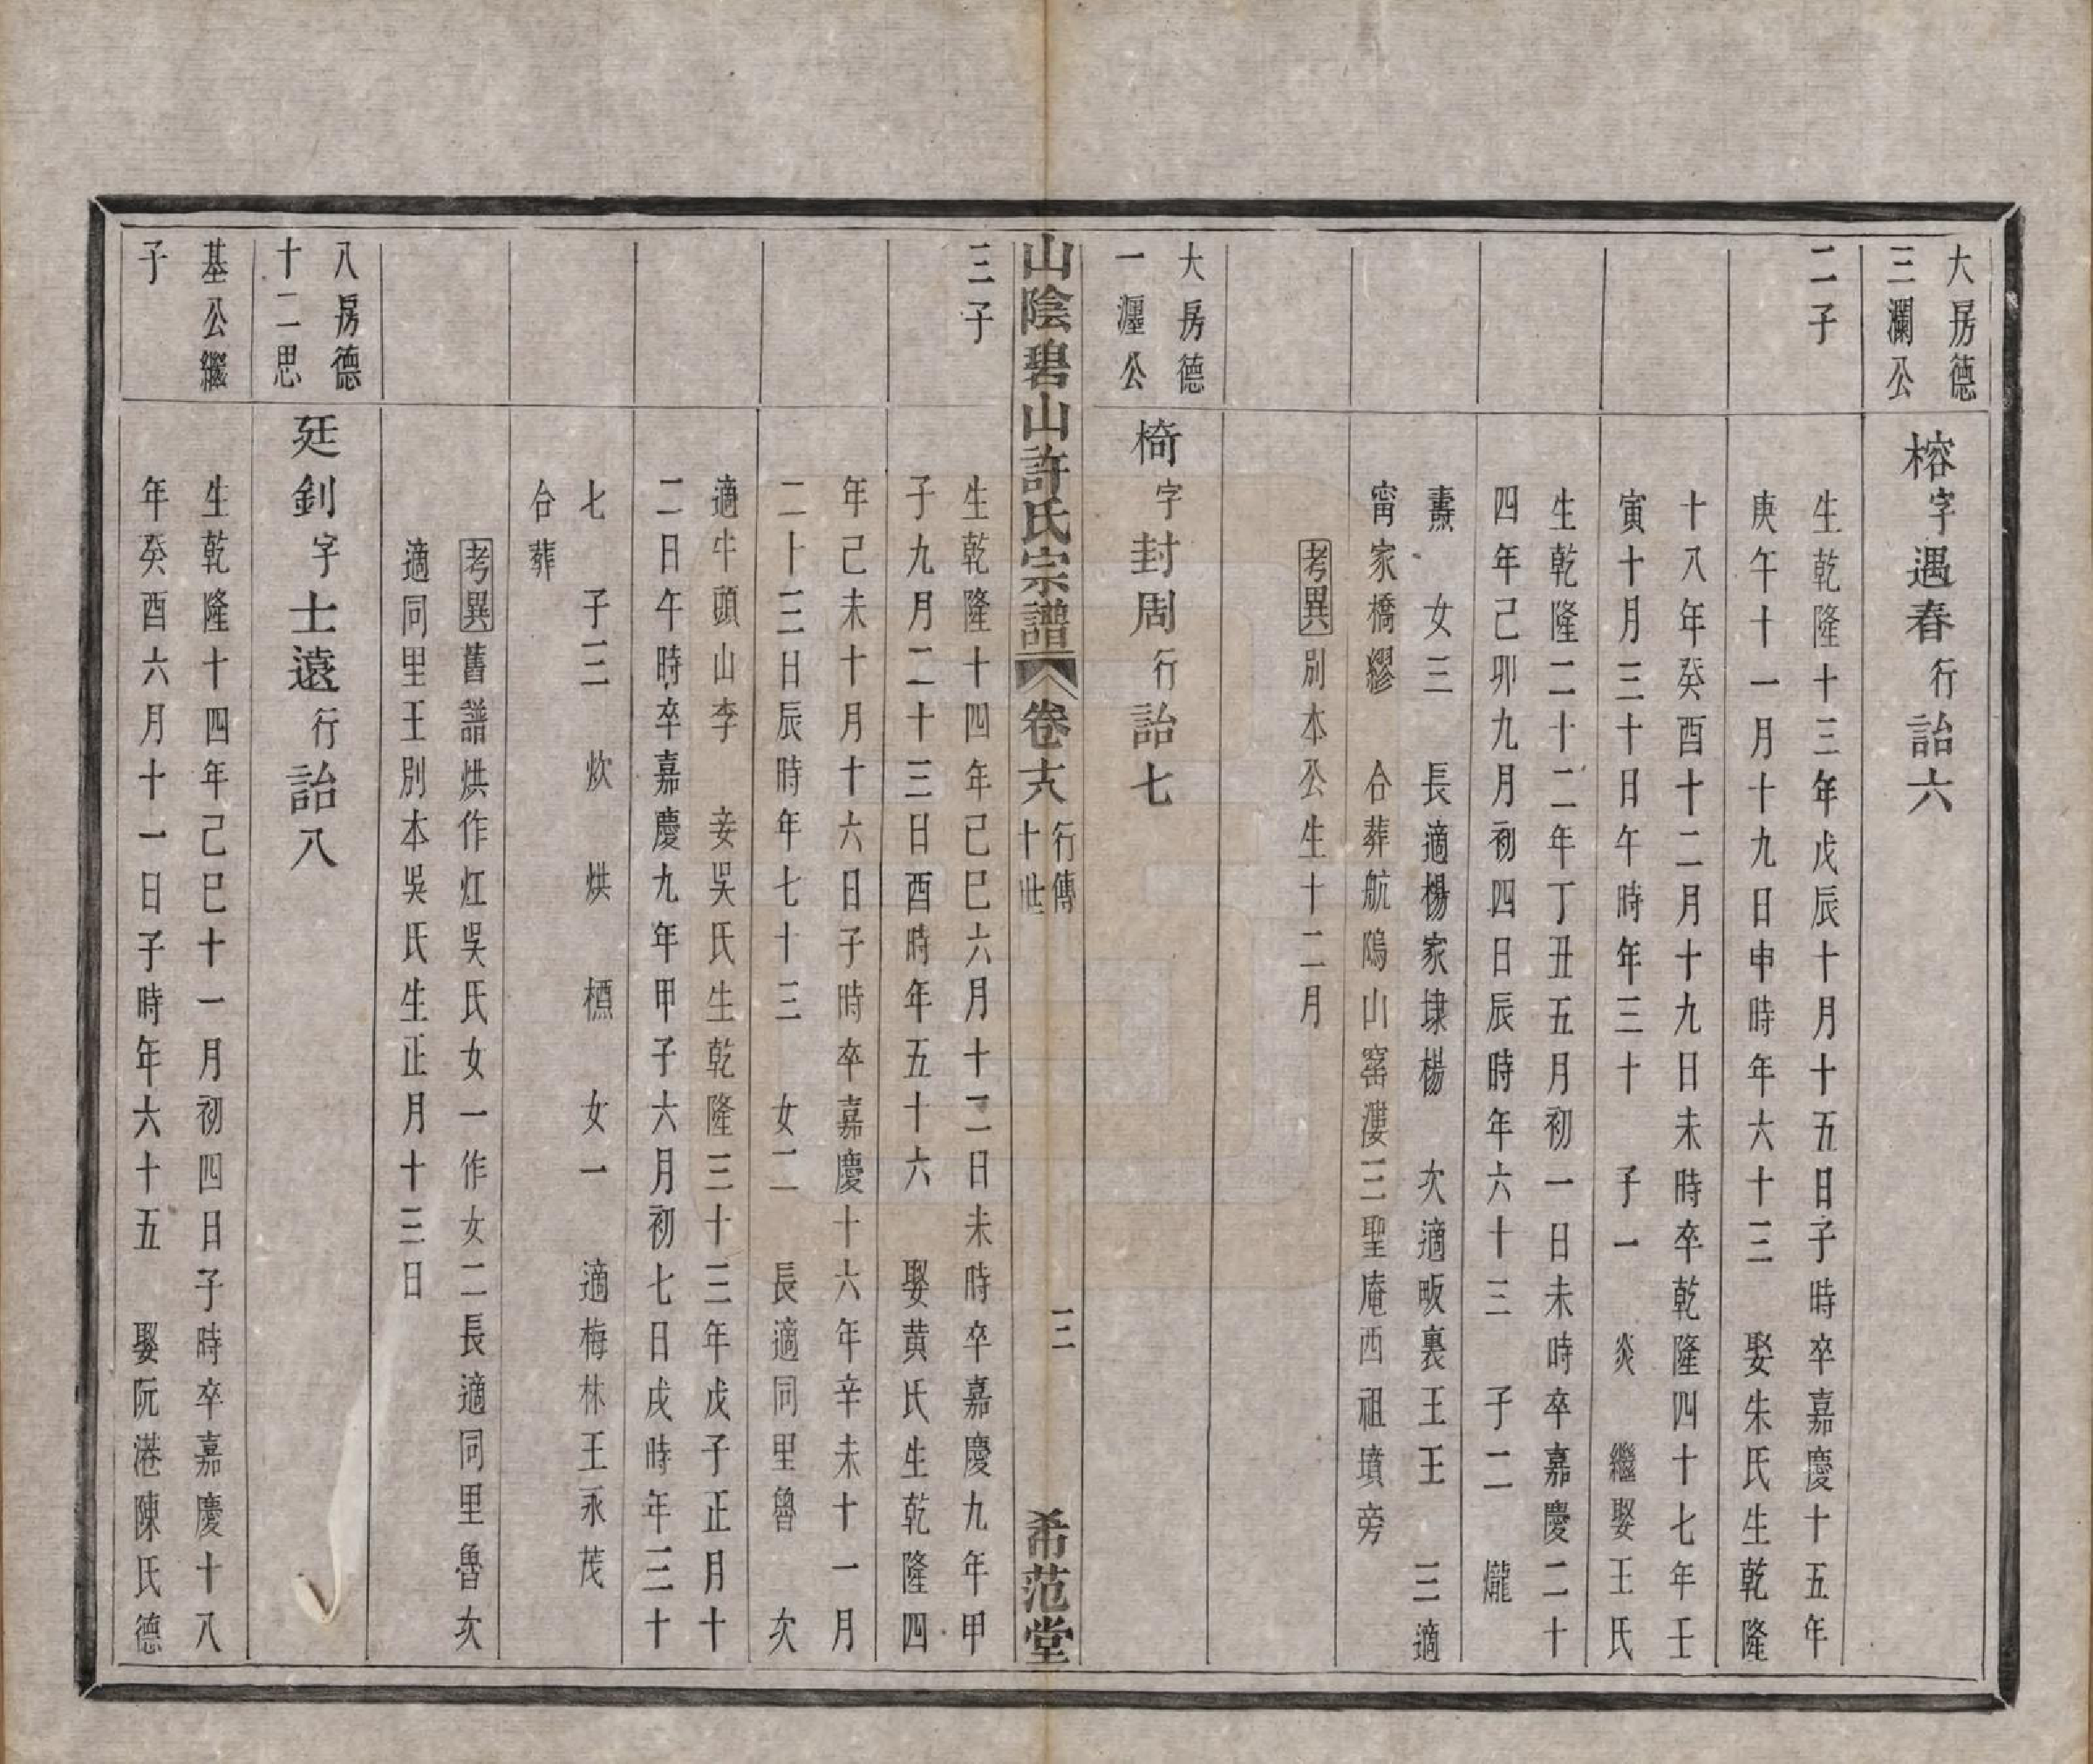 大房德
三瀾公
二子
榕字遇春行詒六
生乾隆十三年戊辰十月十五日子時卒嘉慶十五年
庚午十一月十九日申時年六十三 娶朱氏生乾隆
十八年癸酉十二月十九日未時卒乾隆四十七年壬
寅十月三十日午時年三十 子一 炎 繼娶王氏
生乾隆二十二年丁丑五月初一日未時卒嘉慶二十
四年己卯九月初四日辰時年六十三 子二 爖
燾 女三 長適楊家埭楊 次適畈裏王王 三適
甯家橋繆 合葬航隖山窰漊三聖庵西祖墳旁
考異別本公生十二月
大房德
一瀍公
三子
椅字封周行詒七
山陰碧山許氏宗譜 卷十六 行傳 十世 三 希范堂
生乾隆十四年己巳六月十二日未時卒嘉慶九年甲
子九月二十三日酉時年五十六 娶黃氏生乾隆四
年己未十月十六日子時卒嘉慶十六年辛未十一月
二十三日辰時年七十三 女二 長適同里魯 次
適牛頭山李 妾吳氏生乾隆三十三年戊子正月十
二日午時卒嘉慶九年甲子六月初七日戌時年三十
七 子三 炊 烘 櫄 女一 適梅林王永茂
合葬
考異舊譜烘作灴吳氏女一作女二長適同里魯次
適同里王別本吳氏生正月十三日
八房德
十二思
基公繼
子
廷釗字士遠行詒八
生乾隆十四年己巳十一月初四日子時卒嘉慶十八
年癸酉六月十一日子時年六十五 娶阮港陳氏德